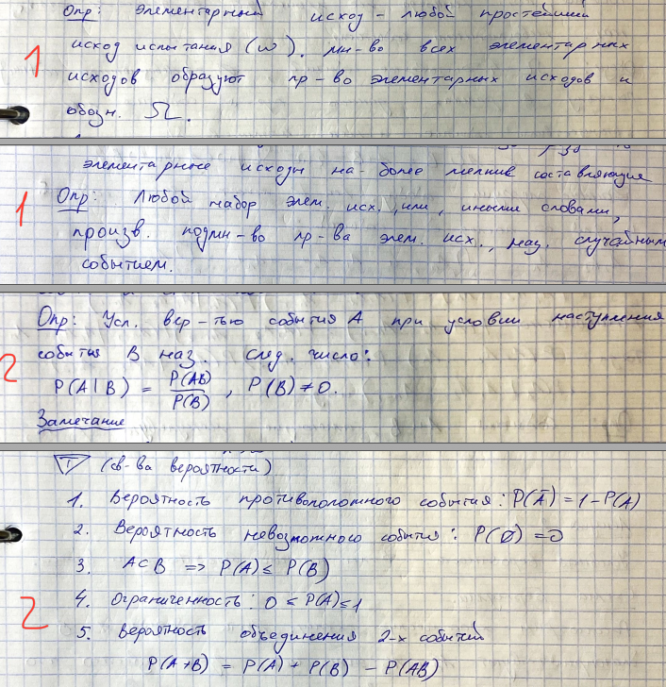 Опр: элементарный исход - любой простейший
1 исход испытания (ω). мн-во всех элементарных
исходов образуют пр-во элементарных исходов и
обозн. Ω.
элементарные исходы на-более мелкие составляющие
1 Опр: Любой набор элем. исх., или, иными словами,
произв. подмн-во пр-ва элем. исх., наз. случайным
событием.
Опр: Усл. вер-тью события A при условии наступления
2 события B наз. след. число:
P(A|B) = P(AB)/P(B), P(B) ≠ 0.
Замечание
T (св-ва вероятности)
1. Вероятность противоположного события: P(Ā) = 1 - P(A)
2. Вероятность невозможного события: P(∅) = 0
3. A⊂B => P(A) ≤ P(B)
2 4. Ограниченность: 0 ≤ P(A) ≤ 1
5. Вероятность объединения 2-х событий
P(A+B) = P(A) + P(B) - P(AB)